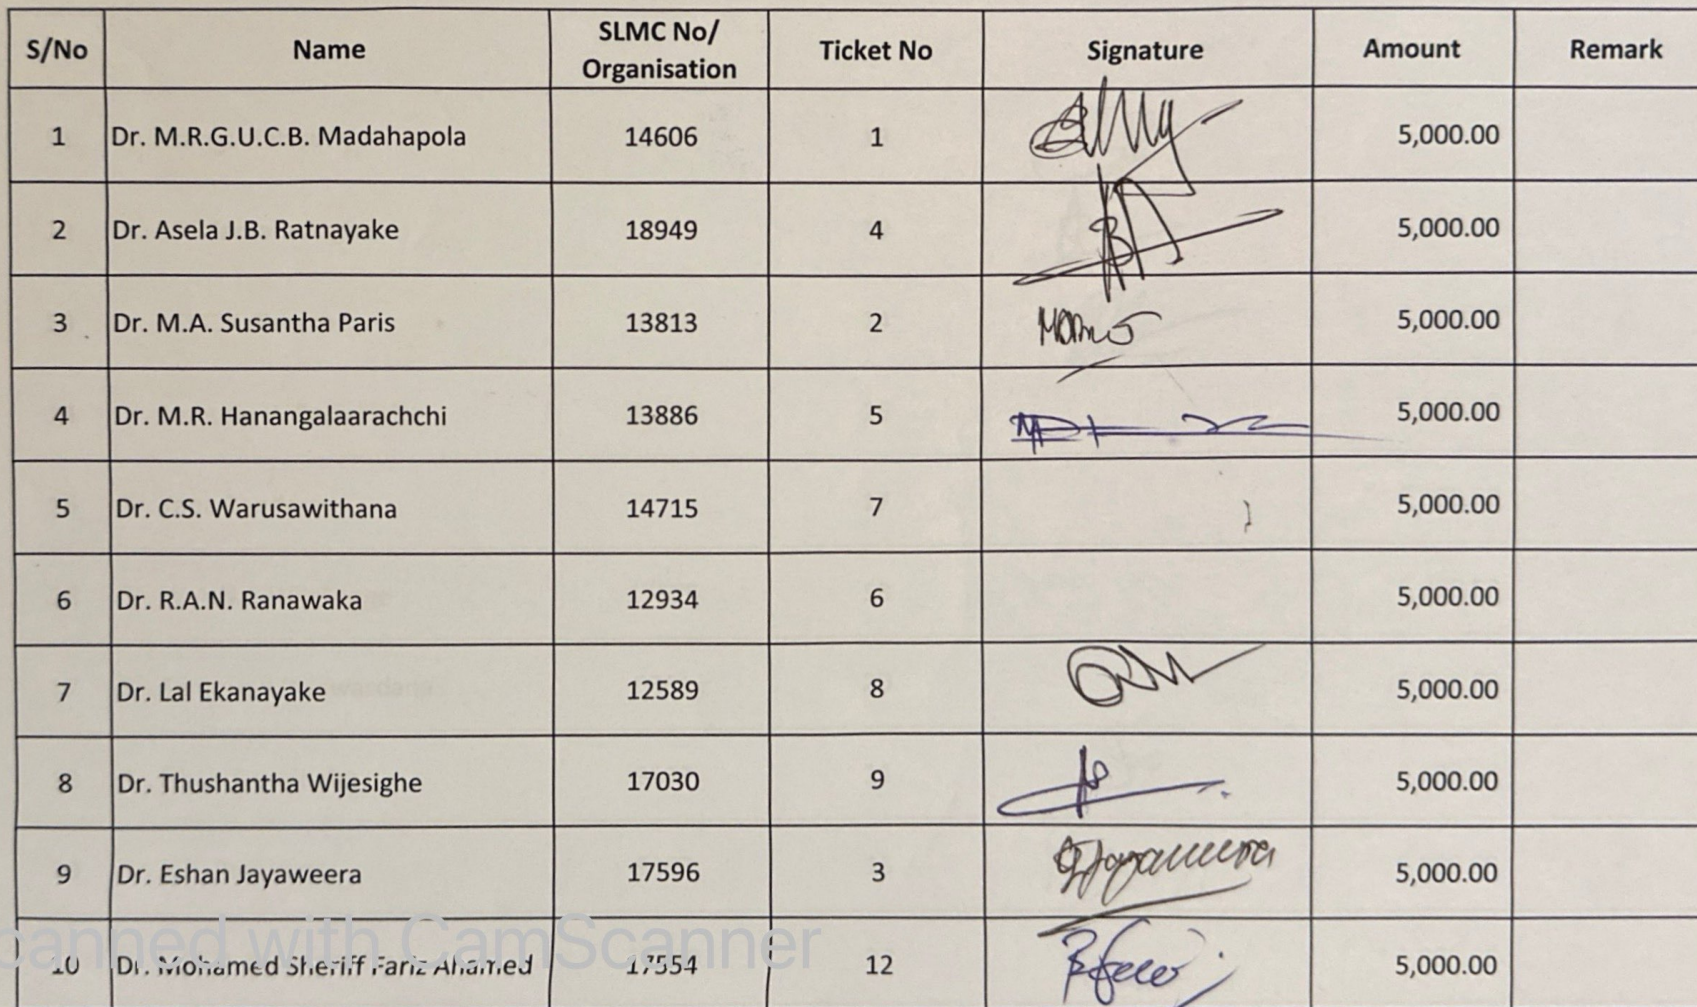 S/No Name SLMC No/ Organisation Ticket No Signature Amount Remark
1 Dr. M.R.G.U.C.B. Madahapola 14606 1 5,000.00
2 Dr. Asela J.B. Ratnayake 18949 4 5,000.00
3 Dr. M.A. Susantha Paris 13813 2 5,000.00
4 Dr. M.R. Hanangalaarachchi 13886 5 5,000.00
5 Dr. C.S. Warusawithana 14715 7 5,000.00
6 Dr. R.A.N. Ranawaka 12934 6 5,000.00
7 Dr. Lal Ekanayake 12589 8 5,000.00
8 Dr. Thushantha Wijesighe 17030 9 5,000.00
9 Dr. Eshan Jayaweera 17596 3 5,000.00
10 Dr. Mohamed Sheriff Fariz Ahamed 17554 12 5,000.00
canned with CamScanner